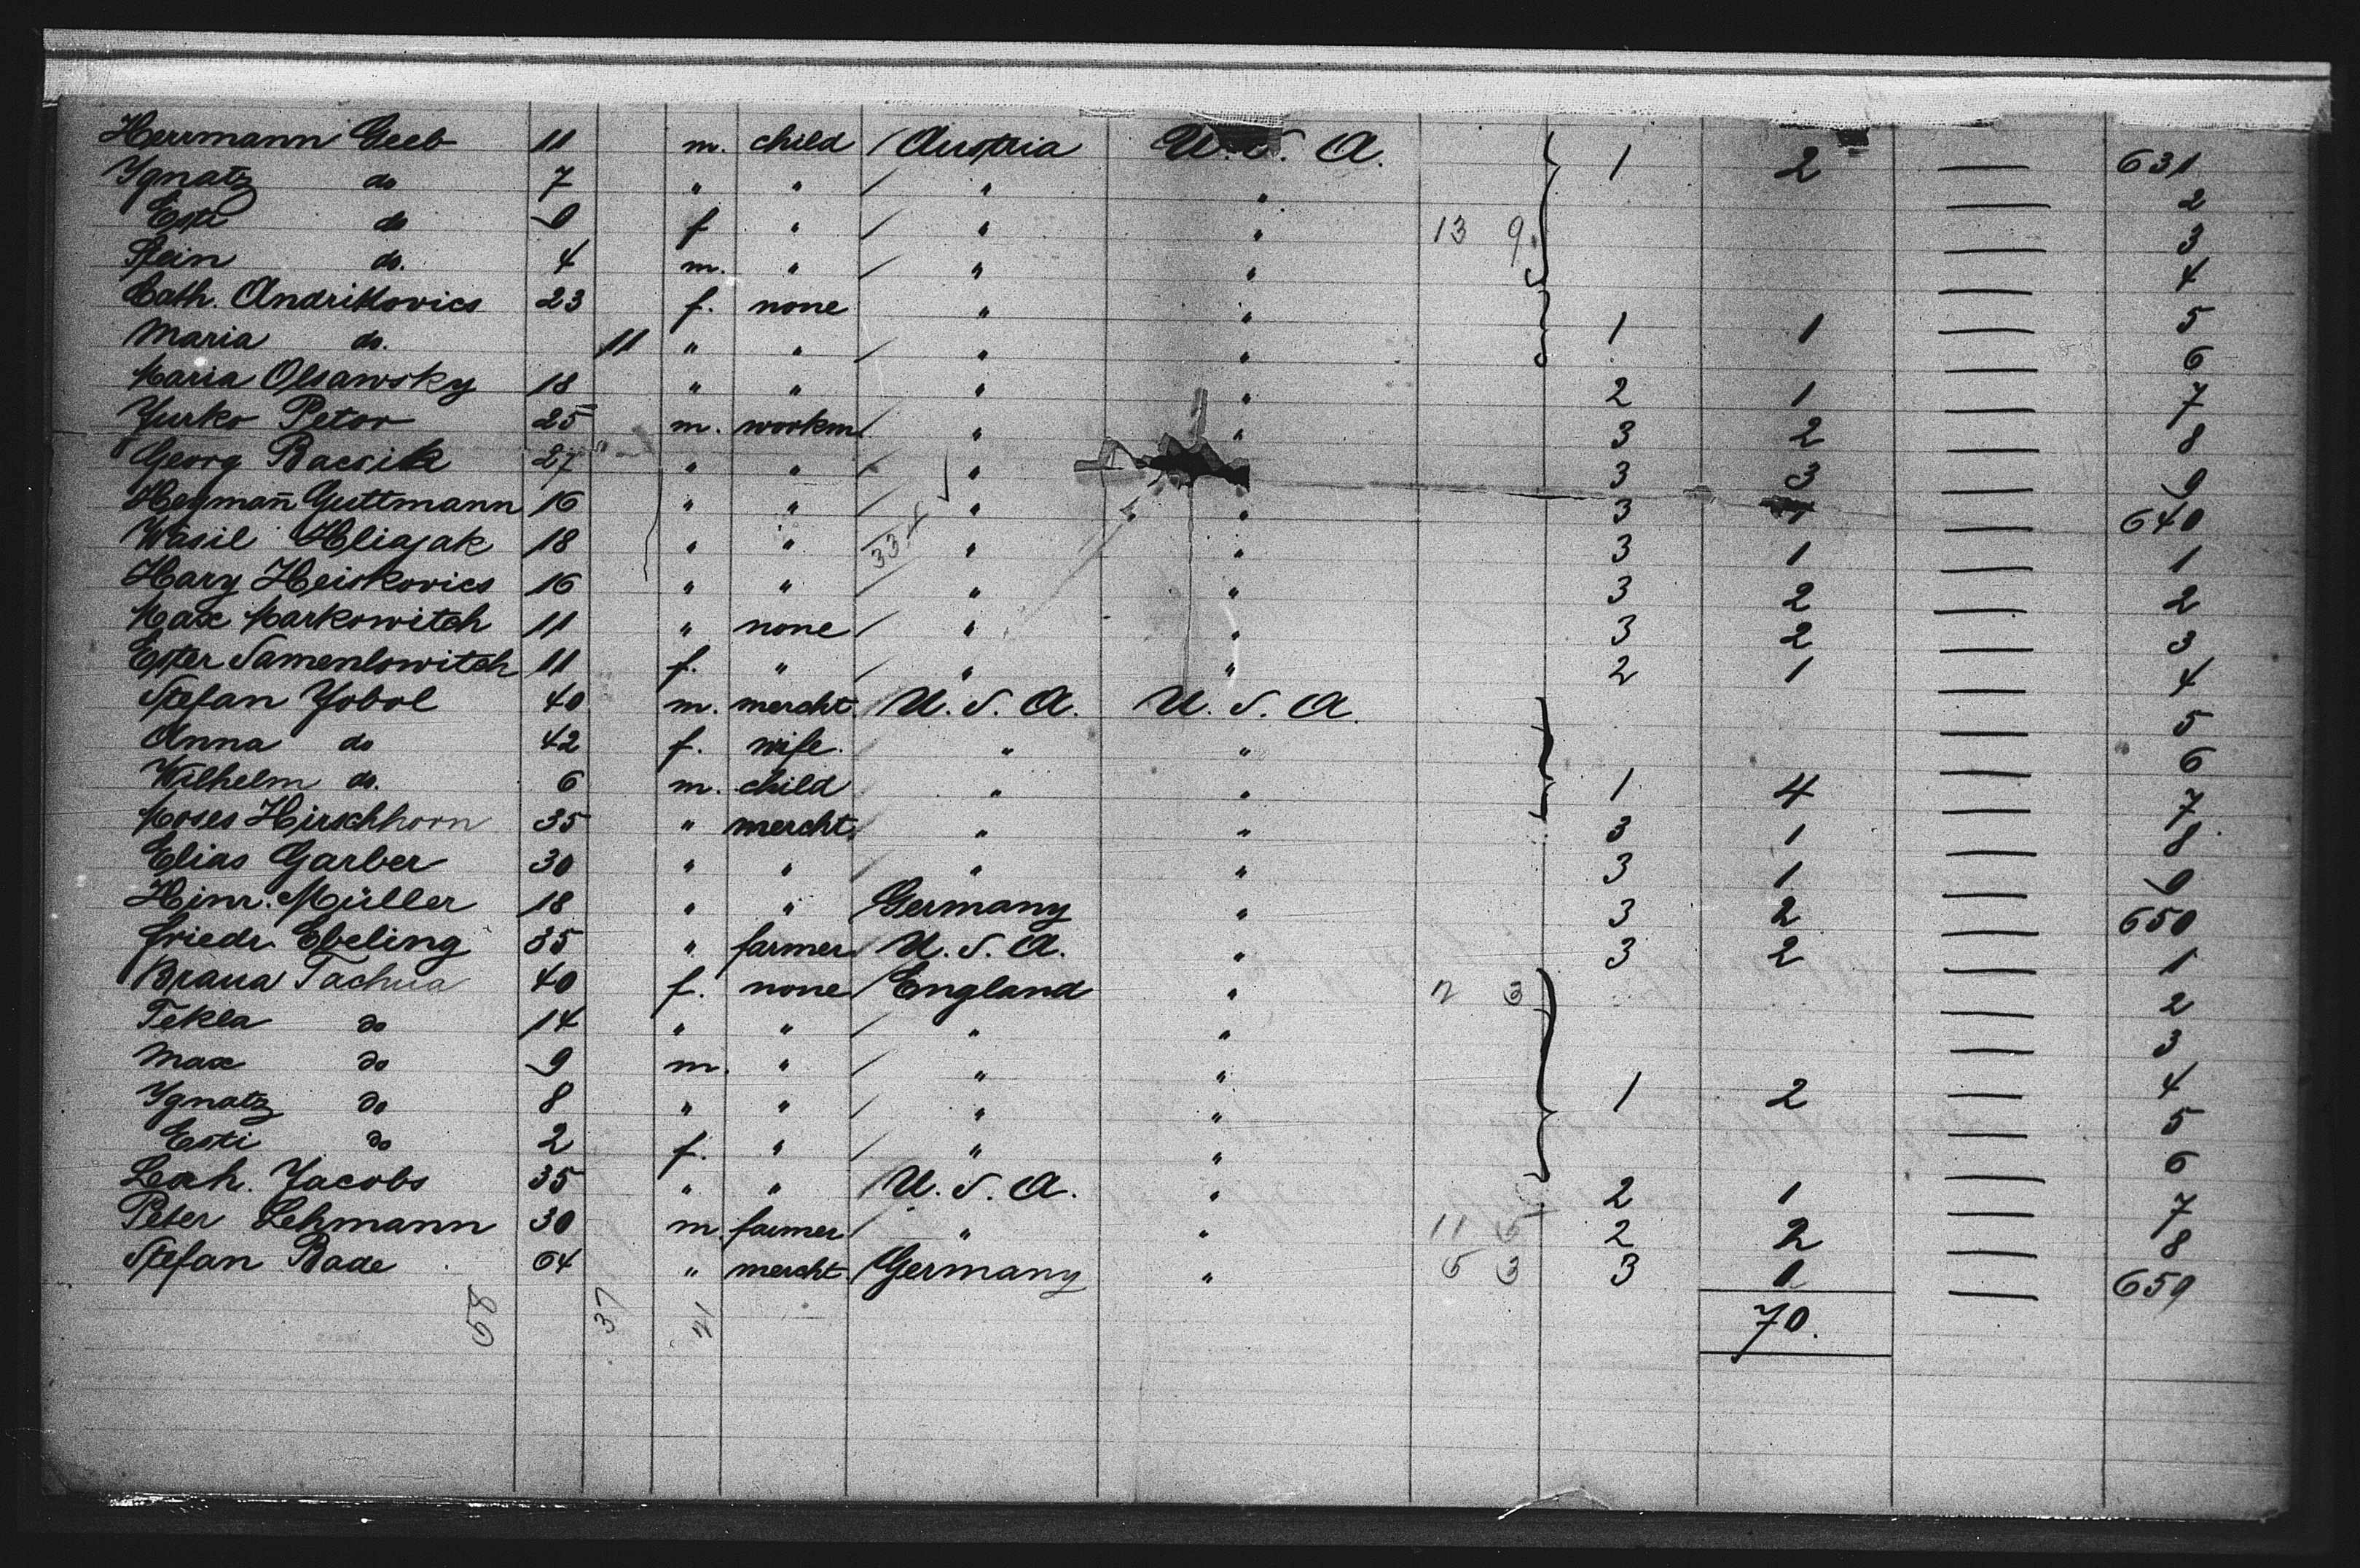 Herrmann Geeb 11 m. child Austria U. S. A. 1 2 — 631
Ignatz do 7 " " " " — 2
Esti do 9 f " " " 13 9 — 3
Stein do. 4 m. " " " — 4
Cath. Andrikovics 23 f. none " " 1 1 — 5
Maria do. 11 " " " " — 6
Maria Olsawsky 18 " " " " 2 1 — 7
Yurko Petor 25 m. workm. " " 3 2 — 8
Georg Bacsik 27 " " " 3 3 — 9
Heymañ Guttmann 16 " " " " 3 1 — 640
Wasil Hliajak 18 " " 334 " " 3 1 — 1
Hary Heiskovics 16 " " " " 3 2 — 2
Max Markowitch 11 " none " " 3 2 — 3
Ester Samenlowitch 11 f. " " " 2 1 — 4
Stefan Yobol 40 m. mercht. U. S. A. U. S. A. — 5
Anna do 42 f. wife. " " — 6
Wilhelm do. 6 m. child " " 1 4 — 7
Moses Hirschhorn 35 " mercht. " " 3 1 — 8
Elias Garber 30 " " " " 3 1 — 9
Hinr. Müller 18 " " Germany " 3 2 — 650
Friedr. Ebeling 35 " farmer U. S. A. " 3 2 — 1
Brana Tachua 40 f. none England " 12 3 — 2
Tekla do 14 " " " " — 3
Max do 9 m. " " " — 4
Ignatz do 8 " " " " 1 2 — 5
Esti do 2 f. " " " — 6
Leah. Jacobs 35 " " U. S. A. " 2 1 — 7
Peter Lehmann 30 m. farmer " " 11 5 2 2 — 8
Stefan Bade 64 " mercht. Germany " 5 3 3 1 — 659
58 37 21 70.